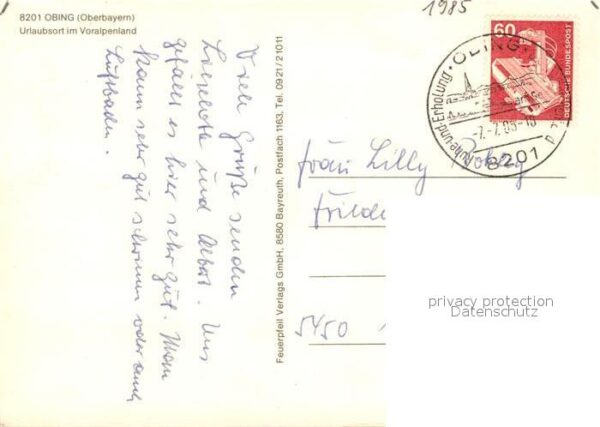 8201 OBING (Oberbayern)
Urlaubsort im Voralpenland
1985
Viele Grüße senden
Lieselotte und Albert. Uns
gefällt es hier sehr gut. Man
kann sehr gut schwimen oder auch
Luftbaden.
Feuerpfeil Verlags GmbH, 8580 Bayreuth, Postfach 1163, Tel. 0921/21011
60
DEUTSCHE BUNDESPOST
OBING
Ruhe-und-Erholung
-7.-7.85-18
8201
Frau Lilly
5450
privacy protection
Datenschutz